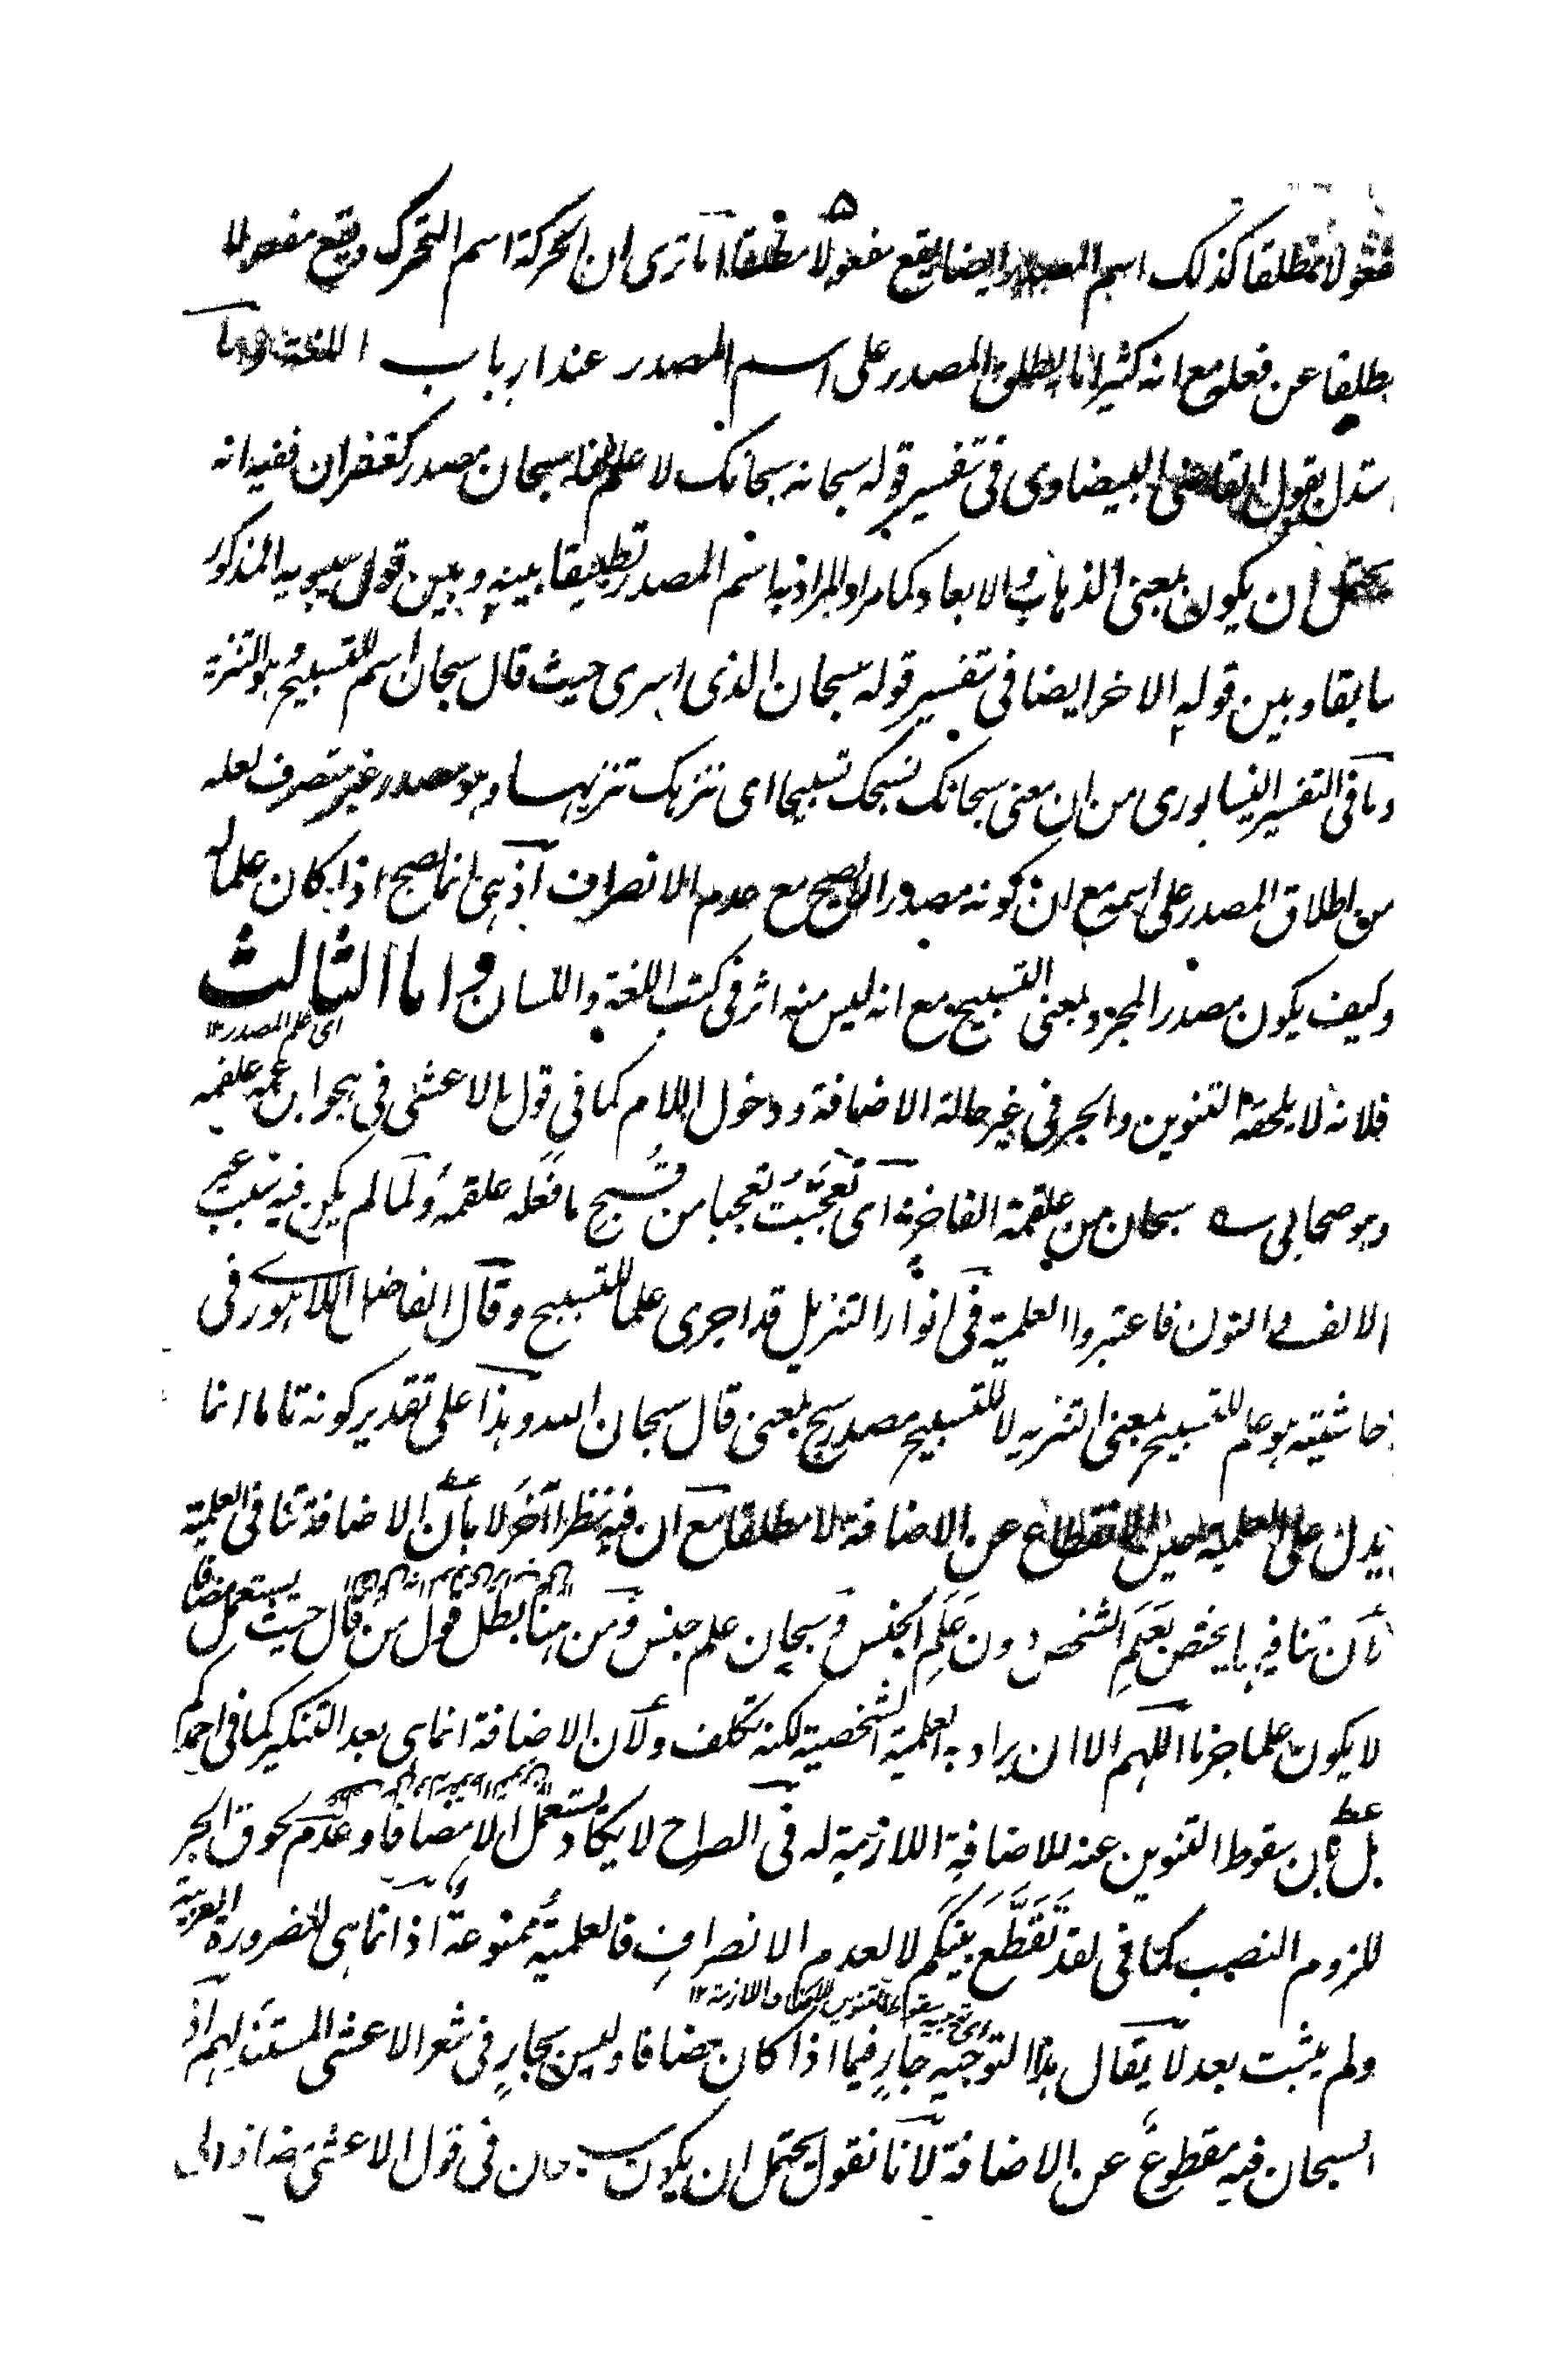 مفعولا مطلقا كذلك اسم المصدر ايضا يقع مفعولا مطلقا اما ترى ان الحركة اسم التحرك وقع مفعولا
مطلقا عن فعله مع انه كثيرا ما يطلق المصدر على اسم المصدر عند ارباب اللغة وما
ستدل بقول القاضى البيضاوى فى تفسير قوله سبحانه سبحانك لا علم لنا سبحان مصدر كغفران ففيه انه
يحتمل ان يكون بمعنى الذهاب والابعاد كما مر او المراد به اسم المصدر تطبيقا بينه وبين قول سيبويه المذكور
سابقا وبين قوله الاخر ايضا فى تفسير قوله سبحان الذى اسرى حيث قال سبحان اسم للتسبيح هو التنزيه
وما فى التفسير النيسابورى من ان معنى سبحانك نسبحك تسبيحا اى ننزهك تنزيها وهو مصدر غير متصرف لعله
من اطلاق المصدر على اسمه مع ان كونه مصدرا لا يصح مع عدم الانصراف اذ هى انما يصح اذا كان علما له
وكيف يكون مصدر المجرد بمعنى التسبيح مع انه ليس منه اثر فى كتب اللغة واللسان واما الثالث
اى علم المصدر ١٢
فلانه لا يلحقه التنوين والجر فى غير حالة الاضافة ودخول اللام كما فى قول الاعشى فى هجو ابن عمه علقمه
وهو صحابى سبحان من علقمة الفاخر اى تعجبت تعجبا من قبيح ما فعله علقمه ولما لم يكن فيه سبب غير
الالف والنون فاعتبروا العلمية فى انوار التنزيل قد اجرى علما للتسبيح وقال الفاضل اللاهورى فى
حاشيته هو علم للتسبيح بمعنى التنزيه لا للتسبيح مصدر سبح بمعنى قال سبحان الله وهذا على تقدير كونه تاما انما
يدل على العلمية حين الانقطاع عن الاضافة لا مطلقا مع ان فيه نظرا اخر لا بان الاضافة تنافى العلمية
لان تنافيها يختص بعلم الشخص دون علم الجنس وسبحان علم جنس ومن هنا بطل قول من قال حيث يستعمل مضافا
لا يكون علما جزما اللهم الا ان يراد به العلمية الشخصية لكنه تكلف ولان الاضافة انما هى بعد التنكير كما فى احمدكم
بل بان سقوط التنوين عنه للاضافة اللازمة له فى الصراح لا يكاد يستعمل الا مضافا وعدم لحوق الجر
للزوم النصب كما فى لقد تقطع بينكم لا لعدم الانصراف فالعلمية ممنوعة اذ انما هى للضرورة العربية
ولم يثبت بعد لا يقال هذا التوجيه جار فيما اذا كان مضافا وليس بجار فى شعر الاعشى المستند لهم اذ
السبحان فيه مقطوع عن الاضافة لانا نقول يحتمل ان يكون سبحان فى قول الاعشى مضافا الى